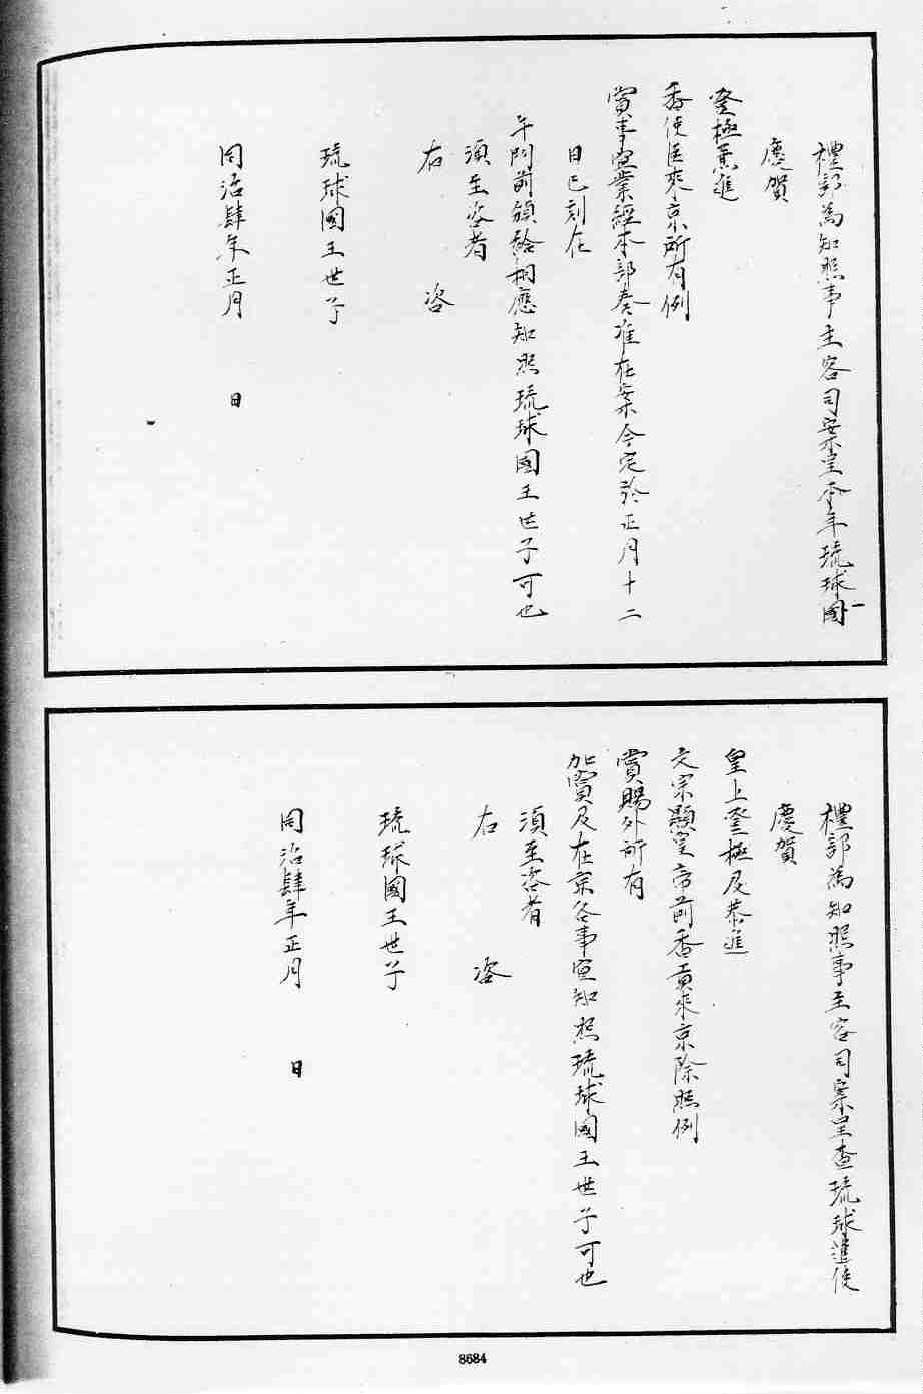 禮部為知照事主客司案呈本年琉球國
慶賀
登極兼進
香使臣來京所有例
賞事宜業經本部奏准在案今定於正月十二
日巳刻在
午門前頒給相應知照琉球國王世子可也
須至咨者
右　　咨
琉球國王世子
同治肆年正月　　日
禮部為知照事主客司案呈查琉球進使
慶賀
皇上登極及恭進
文宗顯皇帝前香貢來京除照例
賞賜外所有
加賞及在京各事宜知照琉球國王世子可也
須至咨者
右　　咨
琉球國王世子
同治肆年正月　　日
8684